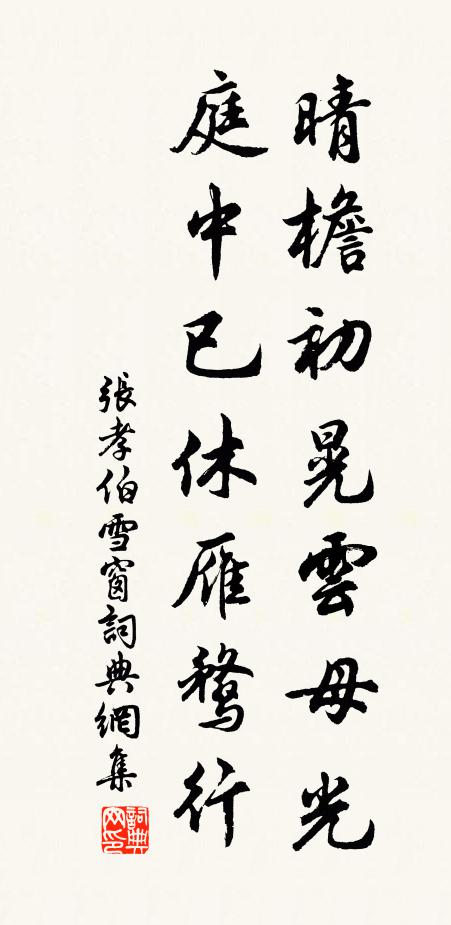 晴檐初晃雲母光
庭中已休雁鶩行
張孝伯雪窗詞典網集
詞典网印